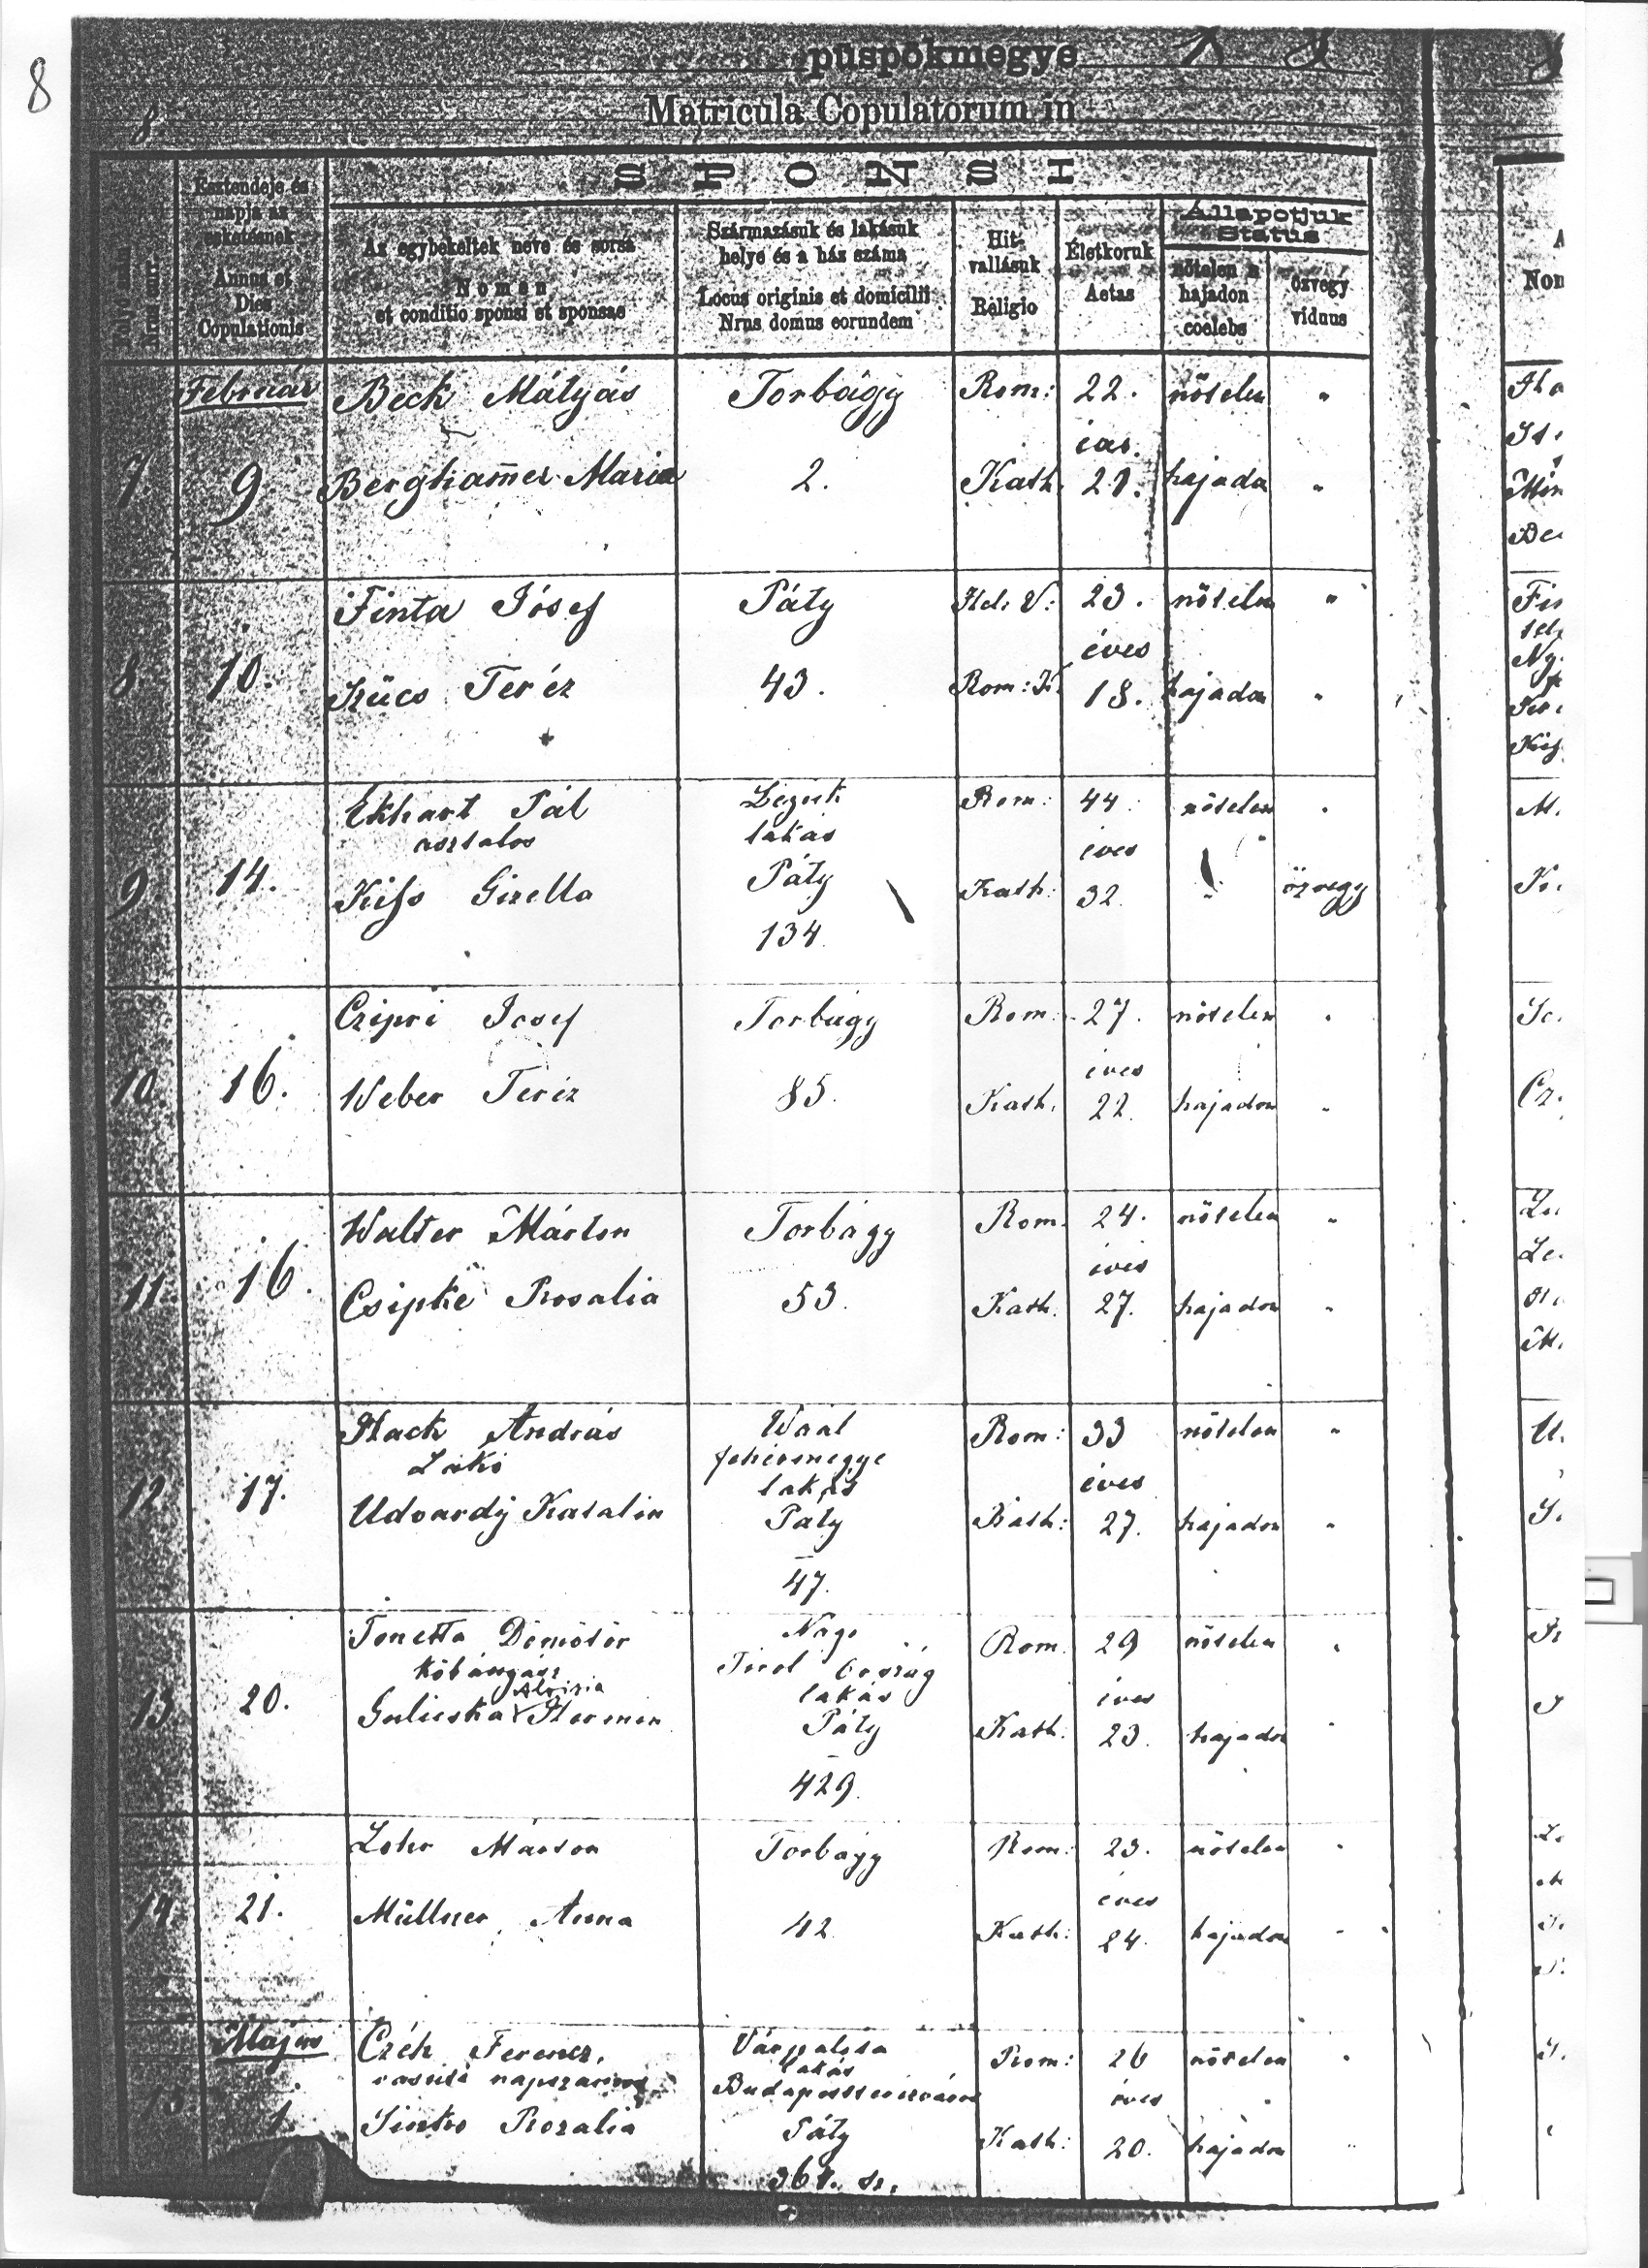 8
püspökmegye
8.
Matricula Copulatorum in
SPONSI
Esztendeje és napja az esketésnek
Annus et Dies Copulationis
Az egybekeltek neve és sorsa
Nomen et conditio sponsi et sponsae
Származásuk és lakásuk helye és a ház száma
Locus originis et domicilii Nrus domus eorundem
Hitvallásuk
Religio
Életkoruk
Aetas
Állapotjuk
Status
nőtelen hajadon
coelebs
özvegy
viduus
Február Beck Mátyás Torbágy Rom: 22. nőtelen "
éves.
7 9 Bergham̄er Maria 2. Kath. 21. hajadon "
Finta Jósef Páty Hel: V: 23. nőtelen "
éves
8 10. Szücs Teréz 43. Rom: K. 18. hajadon "
Ekhart Pál Rom: 44. nőtelen "
asztalos lakás éves
9 14. Kiss Gizella Páty Kath: 32. özvegy
134.
Czipri Josef Torbágy Rom: 27. nőtelen "
éves
10. 16. Weber Teréz 85. Kath. 22. hajadon "
Walter Márton Torbágy Rom. 24. nőtelen "
éves
11. 16. Csipke Rosalia 53. Kath. 27. hajadon "
Hack András Waal Rom: 33 nőtelen "
Lakó fehérmegye éves
lakás
12. 17. Udvardÿ Katalin Páty Kath: 27. hajadon "
47.
Tonetta Dömötör Nago Rom. 29 nőtelen "
kőbányász Tirol Ország
Aloizia lakás éves
13. 20. Gulicska Hermin Páty Kath: 23. hajadon "
429.
Lohr Márton Torbágy Rom: 23. nőtelen "
éves
14 21. Müllner Anna 42. Kath: 24. hajadon "
Május Czéh Ferencz, Várpalota Rom: 26 nőtelen "
lakás
vasuti napszámos éves
15. 1. Sinko Rozalia Páty Kath: 20. hajadon "